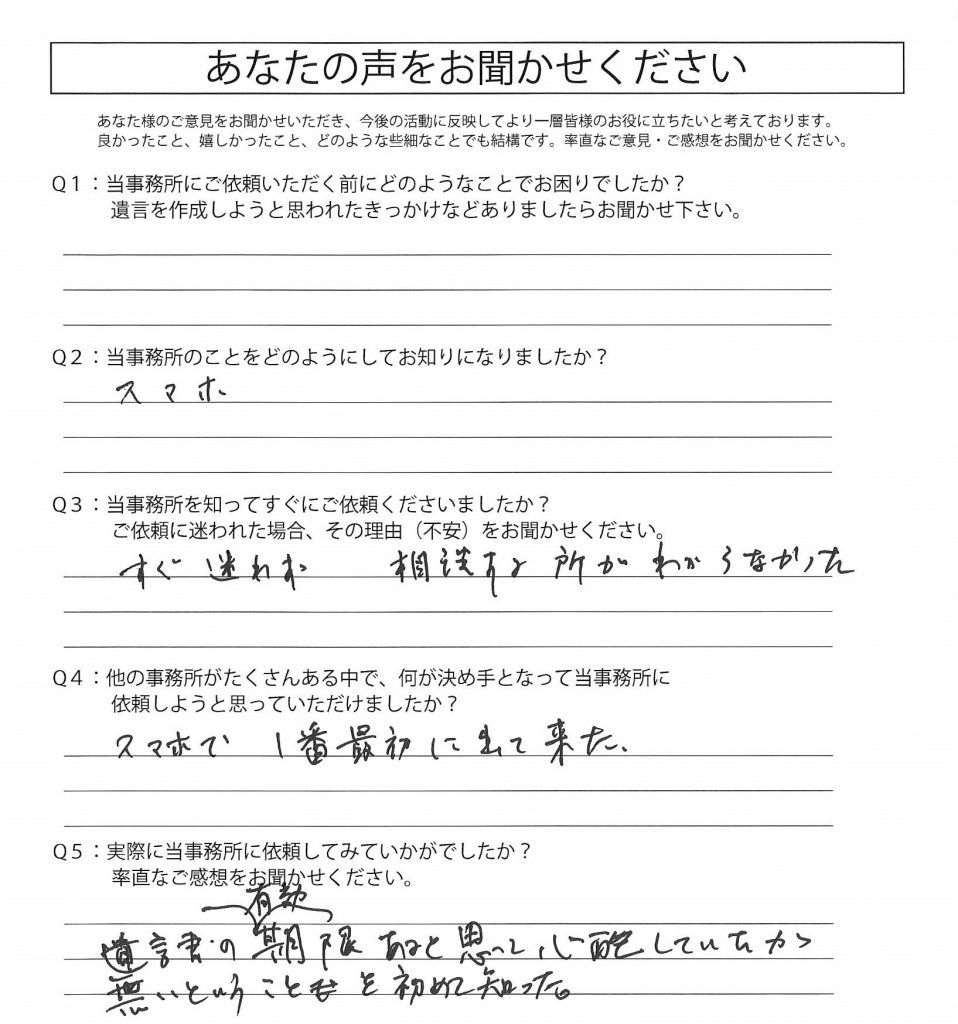 あなたの声をお聞かせください
あなた様のご意見をお聞かせいただき、今後の活動に反映してより一層皆様のお役に立ちたいと考えております。
良かったこと、嬉しかったこと、どのような些細なことでも結構です。率直なご意見・ご感想をお聞かせください。
Q1：当事務所にご依頼いただく前にどのようなことでお困りでしたか？
遺言を作成しようと思われたきっかけなどありましたらお聞かせ下さい。
Q2：当事務所のことをどのようにしてお知りになりましたか？
スマホ
Q3：当事務所を知ってすぐにご依頼くださいましたか？
ご依頼に迷われた場合、その理由（不安）をお聞かせください。
すぐ 迷わず 相談する所がわからなかった
Q4：他の事務所がたくさんある中で、何が決め手となって当事務所に
依頼しようと思っていただけましたか？
スマホで 1番最初に出て来た、
Q5：実際に当事務所に依頼してみていかがでしたか？
率直なご感想をお聞かせください。
有効
遺言書の期限あると思って心配していたが
無いということを初めて知った。